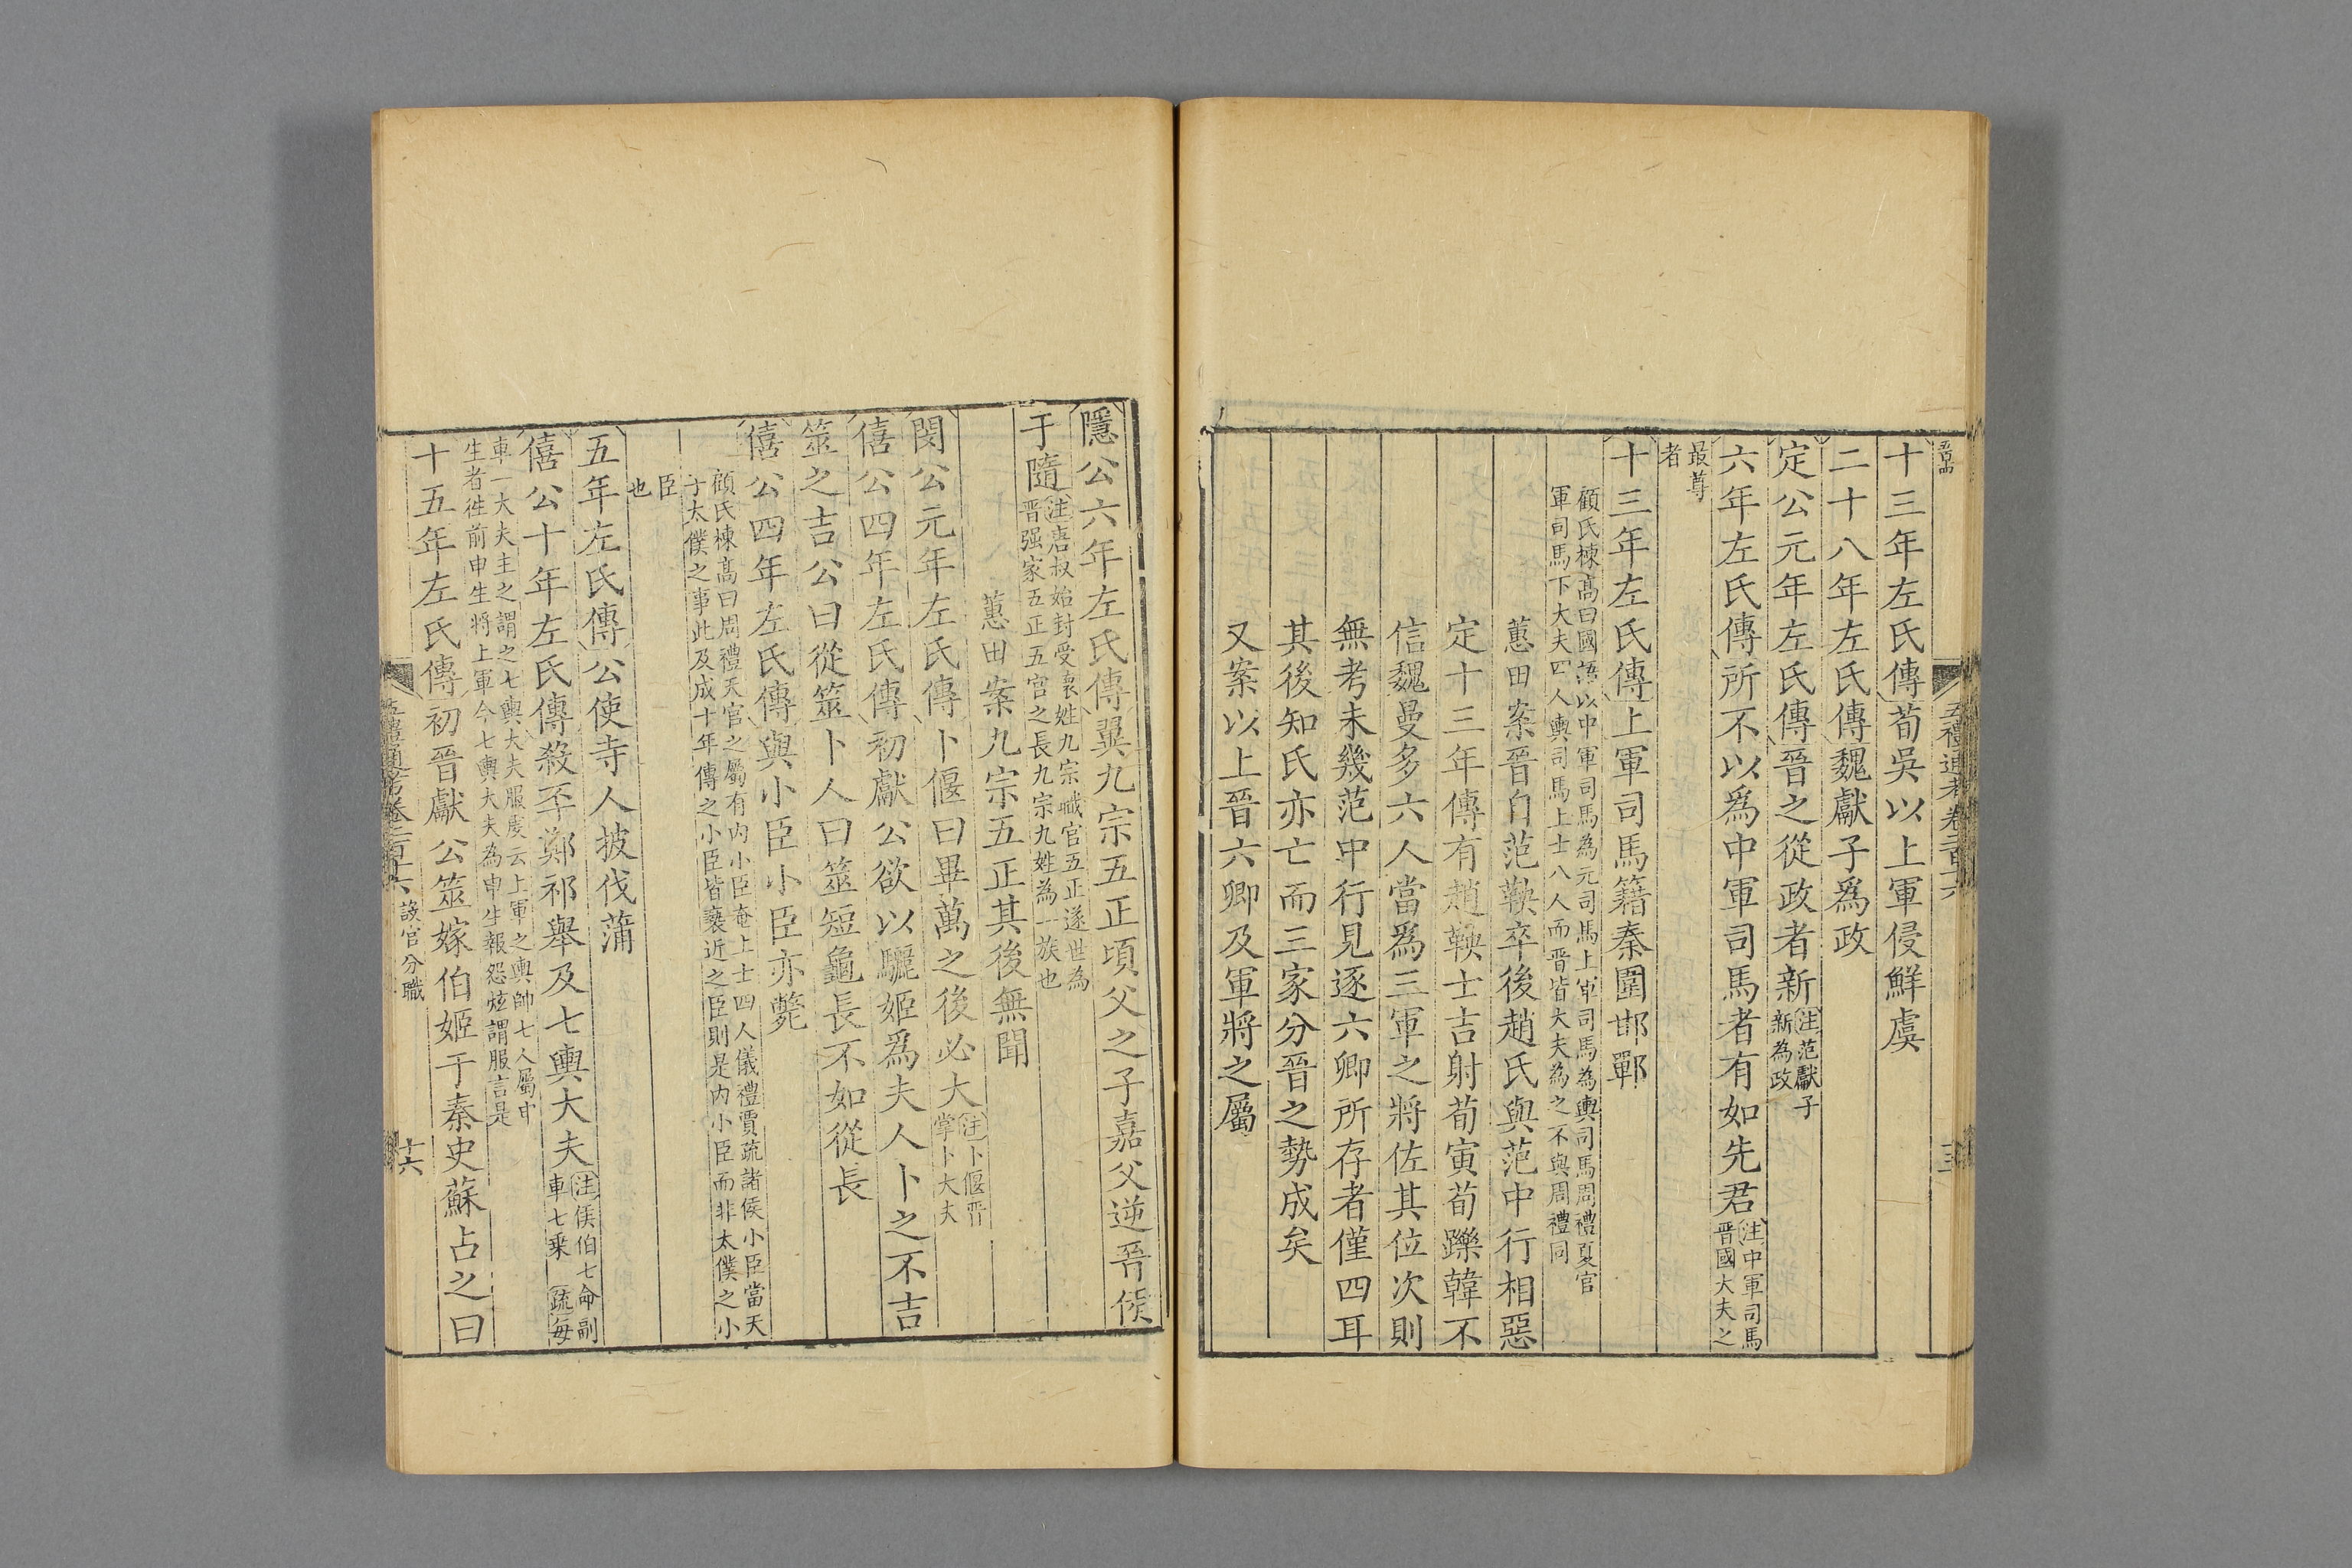 五禮通考卷二百十六
十三年左氏傳荀吳以上軍侵鮮虞
二十八年左氏傳魏獻子爲政
定公元年左氏傳晉之從政者新注范獻子新為政
六年左氏傳所不以爲中軍司馬者有如先君注中軍司馬晉國大夫之
最尊者
十三年左氏傳上軍司馬籍秦圍邯鄲
顧氏棟髙曰國語以中軍司馬為元司馬上軍司馬為輿司馬周禮夏官
軍司馬下大夫四人輿司馬上士八人而晋皆大夫為之不與周禮同
蕙田案晉自范鞅卒後趙氏與范中行相惡
定十三年傳有趙鞅士吉射荀寅荀躒韓不
信魏曼多六人當爲三軍之將佐其位次則
無考未幾范中行見逐六卿所存者僅四耳
其後知氏亦亡而三家分晉之勢成矣
又案以上晉六卿及軍將之屬
隱公六年左氏傳翼九宗五正頃父之子嘉父逆晉侯
于隨注唐叔始封受懷姓九宗職官五正遂世為晋强家五正五官之長九宗九姓為一族也
蕙田案九宗五正其後無聞
閔公元年左氏傳卜偃曰畢萬之後必大注卜偃晋掌卜大夫
僖公四年左氏傳初獻公欲以驪姬爲夫人卜之不吉
筮之吉公曰從筮卜人曰筮短龜長不如從長
僖公四年左氏傳與小臣小臣亦斃
顧氏棟髙曰周禮天官之屬有内小臣奄上士四人儀禮賈疏諸侯小臣當天
子太僕之事此及成十年傳之小臣皆褻近之臣則是内小臣而非太僕之小
臣也
五年左氏傳公使寺人披伐蒲
僖公十年左氏傳殺丕鄭祁舉及七輿大夫注侯伯七命副車七乗 疏每
車一大夫主之謂之七輿大夫服虔云上軍之輿帥七人屬申
生者往前申生將上軍今七輿大夫為申生報怨炫謂服言是
十五年左氏傳初晉獻公筮嫁伯姬于秦史蘇占之曰
五禮通考卷二百十六 設官分職 十六